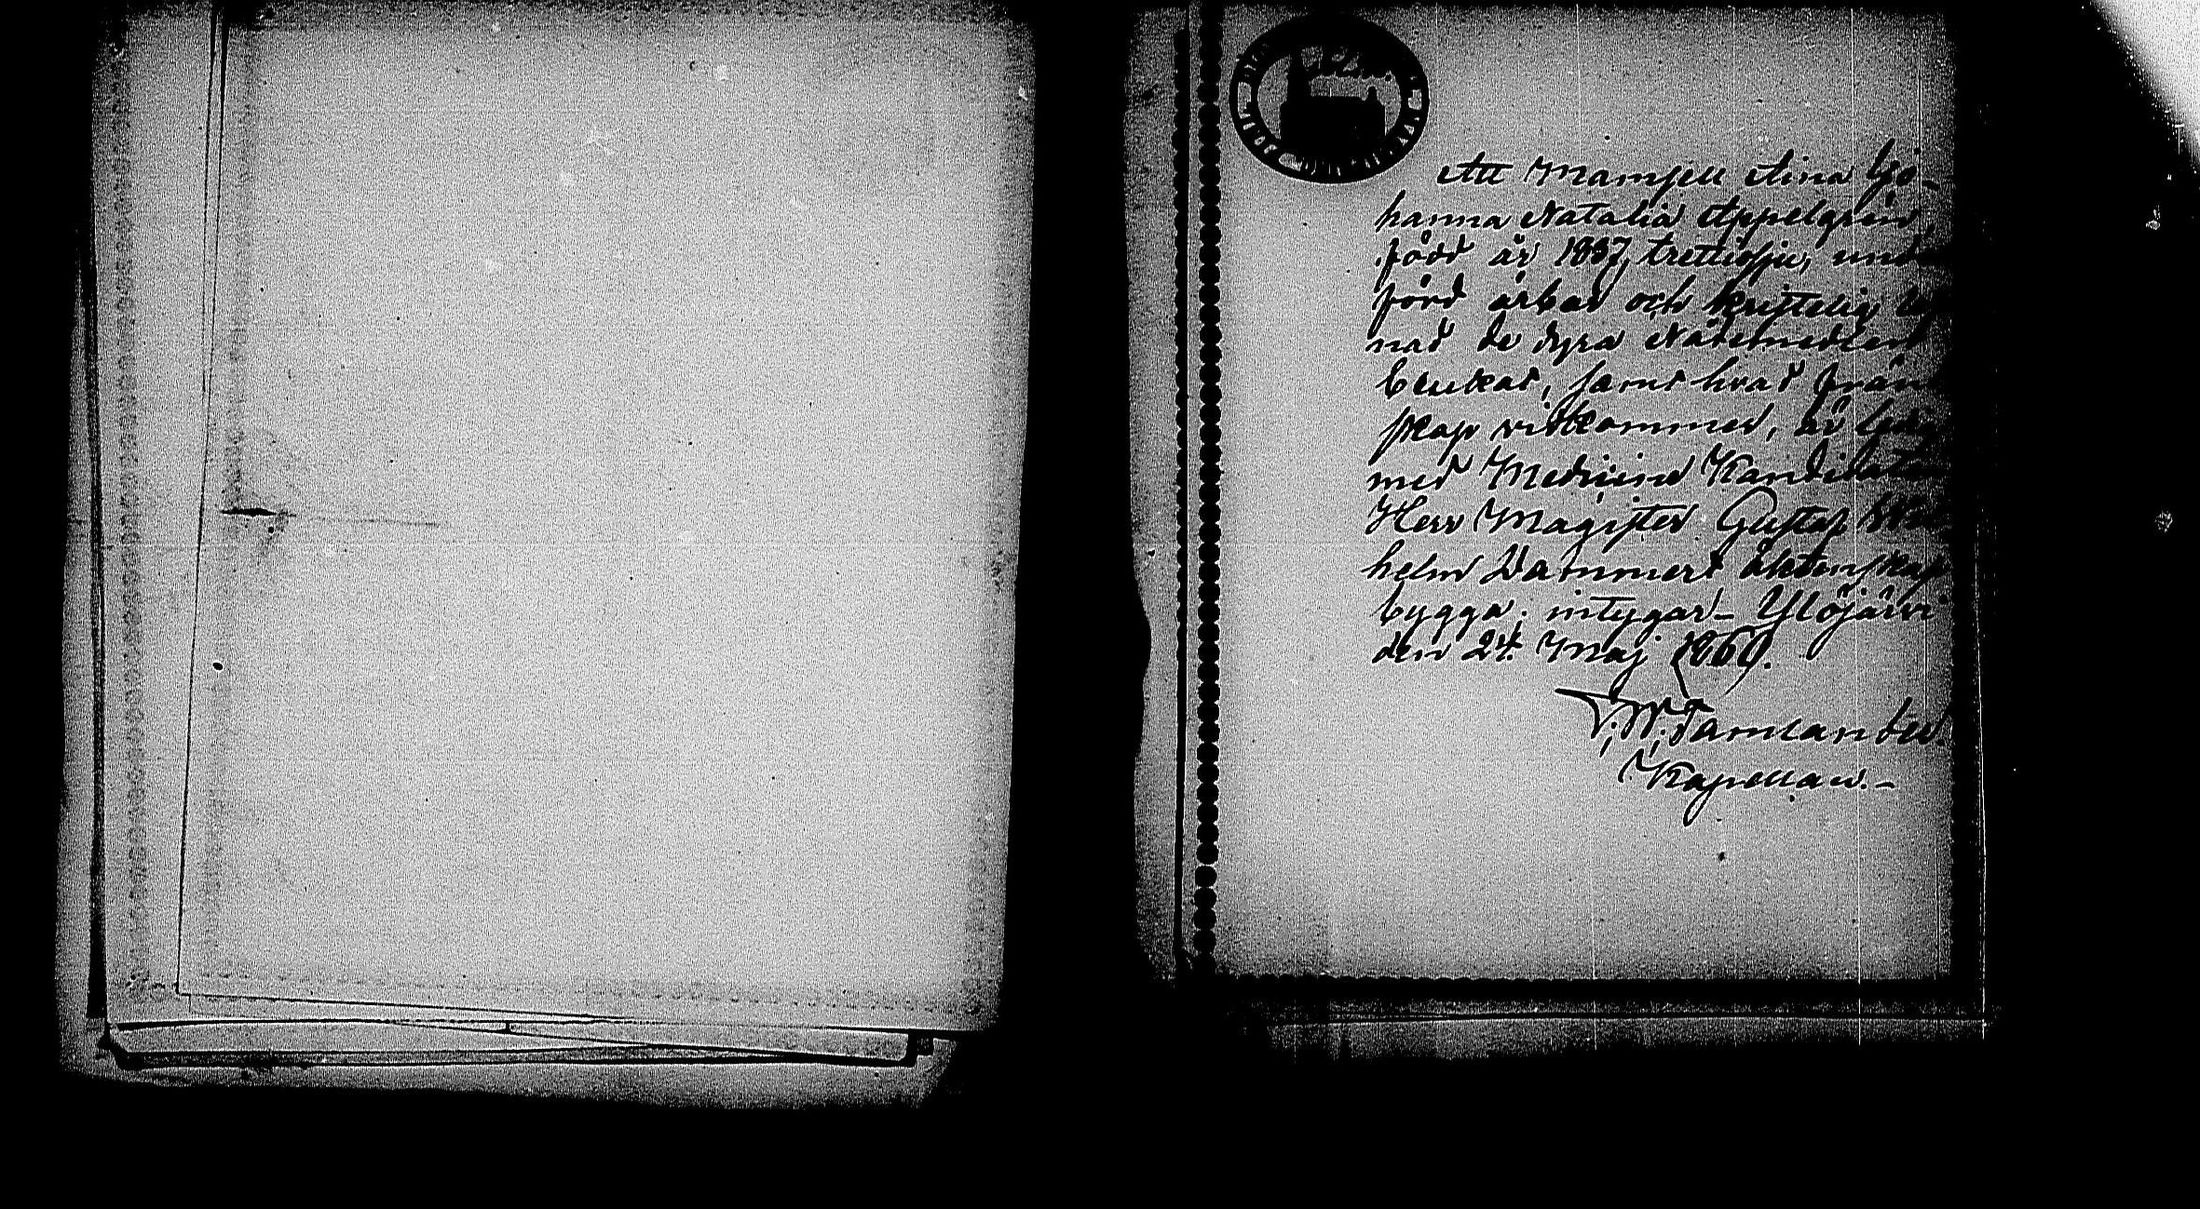 Att Mamsell Aina Jo-
hanna Natalia Appelgren
född år 1837, trettisju, und
förd ärbar och kristelig
nad de dyra Nådemedlen
brukat, samt hvad frän
skap vidkommer, är
med Medicine Kandidaten
Herr Magister Gustaf Wil
helm Dammert äktenskap
bygga; intygar_ Ylöjärvi
den 24. Maj 1861.
F. W. Tamlander.
Kapellan._